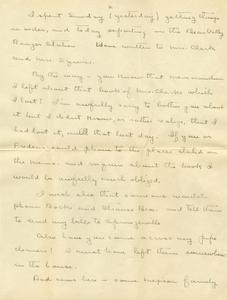 I spent Sunday (yesterday) getting things
in order, and today reporting on the Bear Valley
Ranger Station. Have written to Mrs. Clark
and Mrs. Symons.
By the way - you know that memorandum
I left about that book of Mrs. Clarks which
I lost? I'm awfully sorry to bother you about
it but I didn't know, or rather realize, that I
had lost it, until that last day. If you or
Frederic could phone to the place stated on
the memo. and inquire about the book I
would be awfully much obliged.
I wish also that someone would
phone Bocks and Strauss Bros. and tell them
to send my bills to Springville.
Also have you come across my pipe
cleaners? I must have left them somewhere
in the house.
And came here - some Mexican family